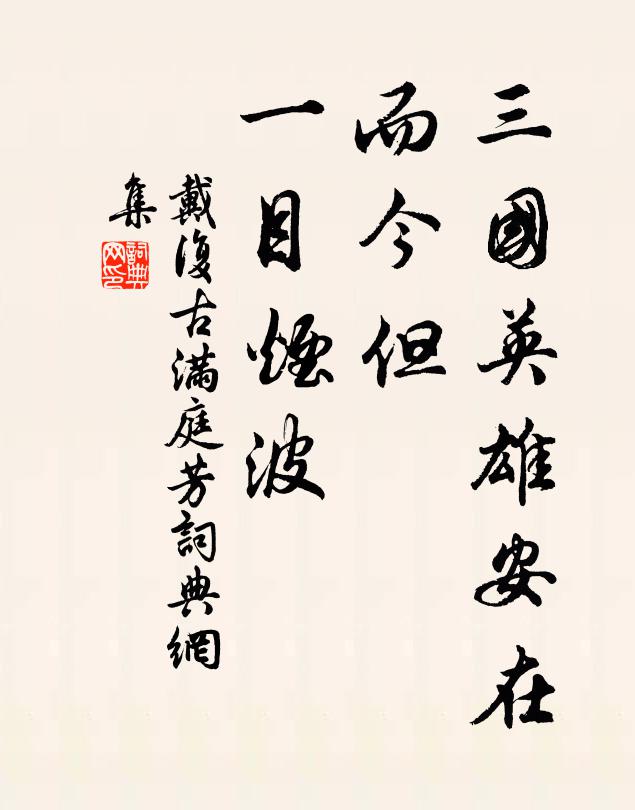 三國英雄安在
而今但
一目煙波
戴復古滿庭芳詞典網
集
詞典网印